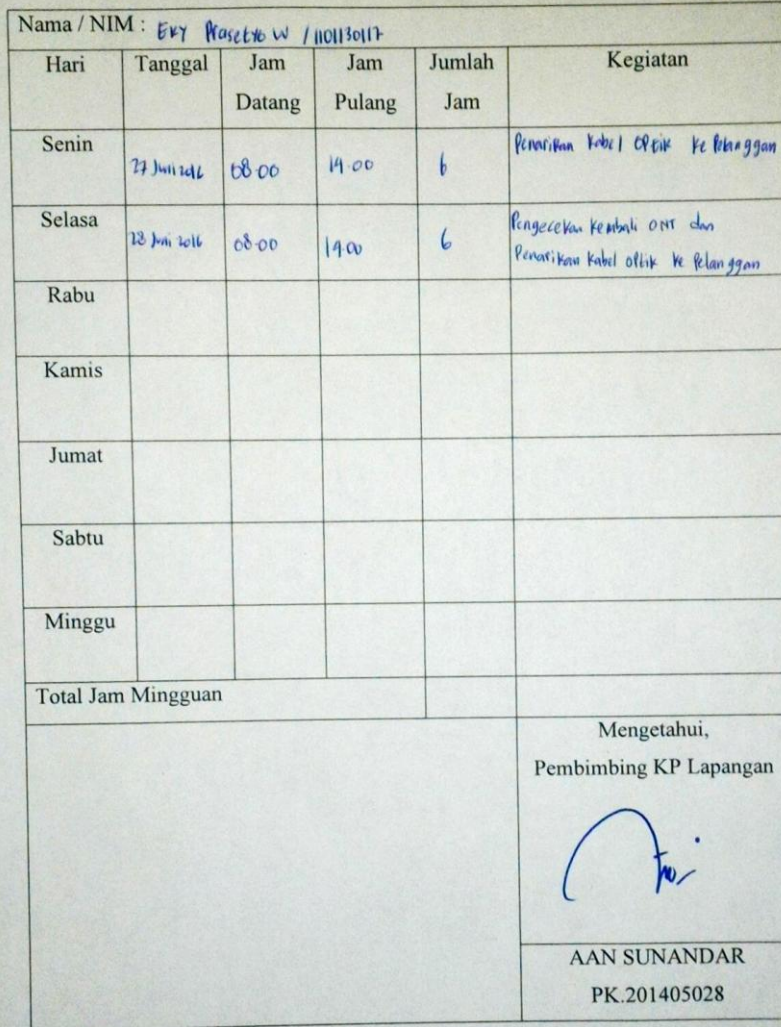 Nama / NIM : Eky Prasetyo W / 1101130117
Hari Tanggal Jam Datang Jam Pulang Jumlah Jam Kegiatan
Senin 27 Juni 2016 08.00 14.00 6 Penarikan Kabel Optik Ke Pelanggan
Selasa 28 Juni 2016 08.00 14.00 6 Pengecekan Kembali ONT dan
Penarikan Kabel Optik Ke Pelanggan
Rabu
Kamis
Jumat
Sabtu
Minggu
Total Jam Mingguan
Mengetahui,
Pembimbing KP Lapangan
AAN SUNANDAR
PK.201405028